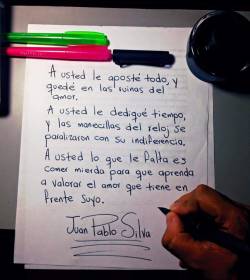 A usted le aposté todo, y
quedé en las ruinas del
amor.
A usted le dediqué tiempo,
y las manecillas del reloj se
paralizaron con su indiferencia.
A usted lo que le falta es
comer mierda para que aprenda
a valorar el amor que tiene en
frente suyo.
Juan Pablo Silva